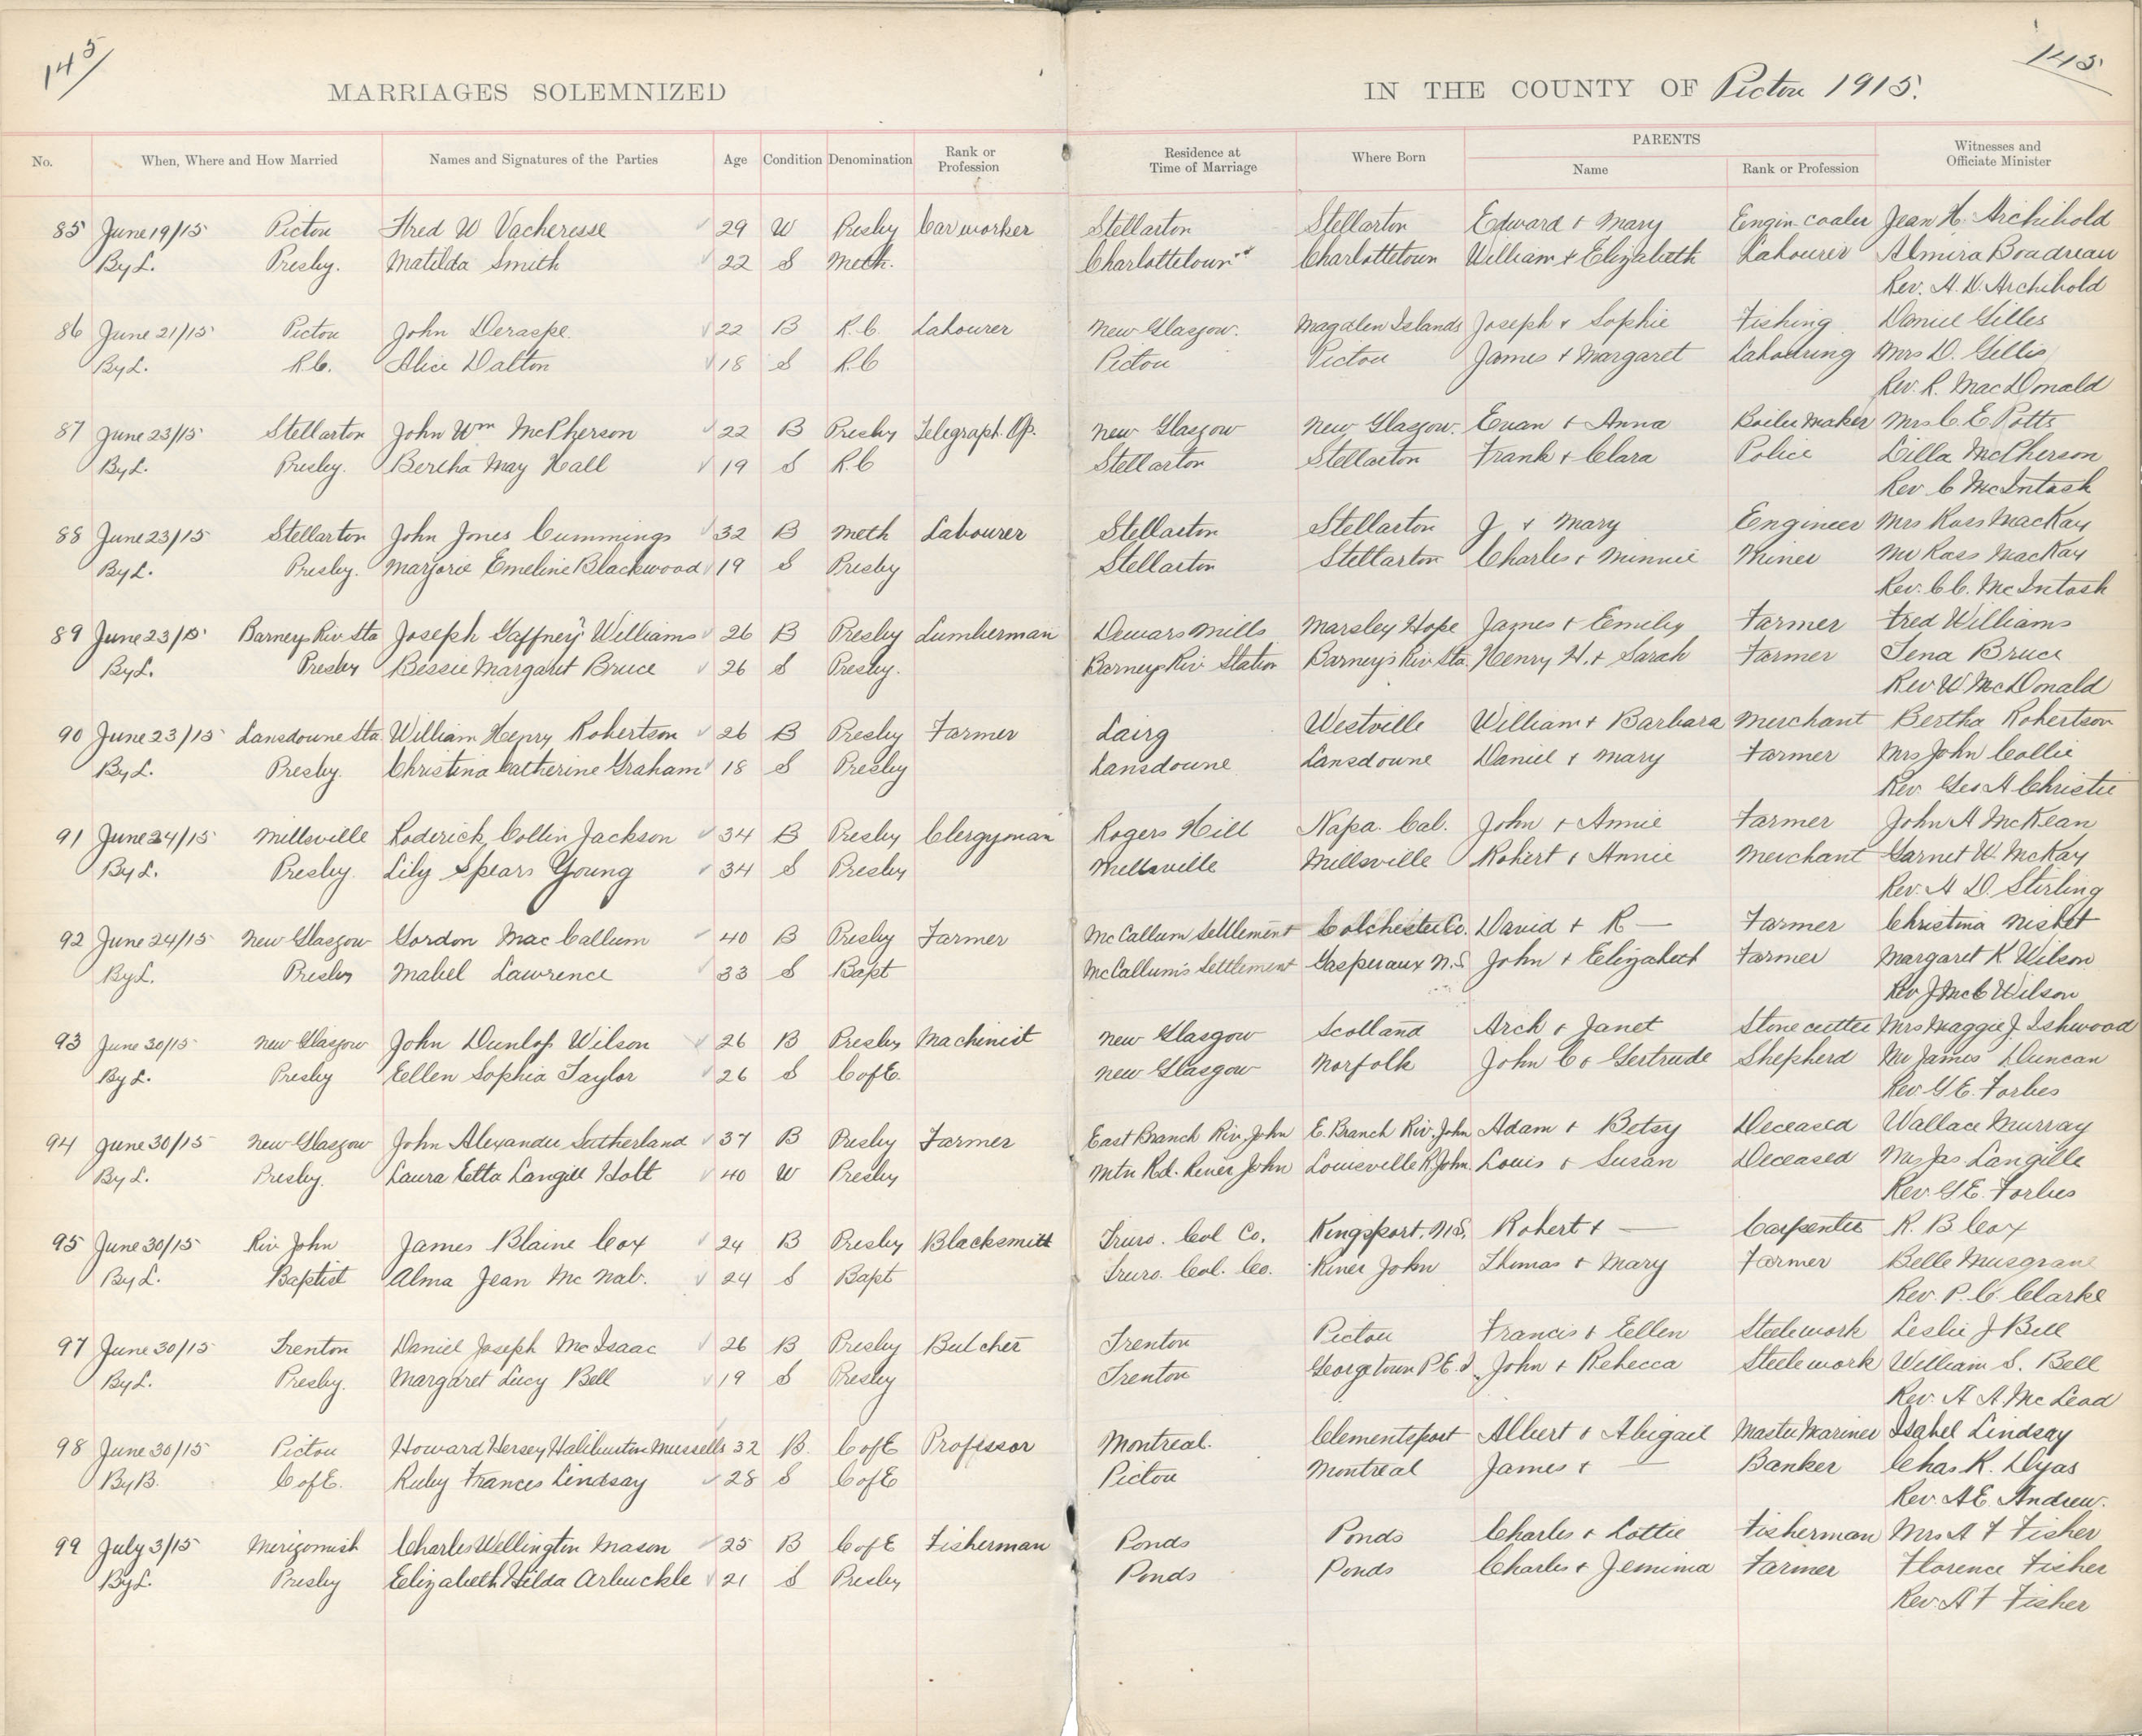 145
145
MARRIAGES SOLEMNIZED IN THE COUNTY OF Pictou 1915.
No. When, Where and How Married Names and Signatures of the Parties Age Condition Denomination Rank or Profession Residence at Time of Marriage Where Born PARENTS Name Rank or Profession Witnesses and Officiate Minister
85 June 19/15 Pictou Fred W Vacheresse 29 W Presby Car worker Stellarton Stellarton Edward + Mary Engin. coaler Jean H. Archibold
By L. Presby. Matilda Smith 22 S Meth. Charlottetown Charlottetown William + Elizabeth Labourer Almira Boadreau
Rev. A. D. Archibold
86 June 21/15 Pictou John Deraspe 22 B R.C. Labourer New Glasgow. Magdlen Islands Joseph + Sophie Fishing Daniel Gilles
By L. R.C. Alice Dalton 18 S R.C Pictou Pictou James + Margaret Labouring Mrs D. Gillis
Rev. R. MacDonald
87 June 23/15 Stellarton John Wm McPherson 22 B Presby Telegraph. Op. New Glasgow New Glasgow. Euan + Anna Boiler Maker Mrs C. E Potts
By L. Presby. Bertha May Hall 19 S R.C Stellarton Stellarton Frank + Clara Police Lilla McPherson
Rev. C McIntosh
88 June 23/15 Stellarton John Jones Cummings 32 B Meth Labourer Stellarton Stellarton J + Mary Engineer Mrs Ross MacKay
By L. Presby. Marjorie Emeline Blackwood 19 S Presby Stellarton Stellarton Charles + Minnie Miner Mr Ross MacKay
Rev. C.C. McIntosh
89 June 23/15 Barneys Riv. Sta Joseph Gaffney Williams 26 B Presby Lumberman Dewars Mills Marsley Hope James + Emily Farmer Fred Williams
By L. Presby Bessie Margaret Bruce 26 S Presby. Barneys Riv Station Barney's Riv Sta. Henry H. + Sarah Farmer Tena Bruce
Rev W. McDonald
90 June 23/15 Lansdowne Sta. William Henry Robertson 26 B Presby Farmer Lairg Westville William + Barbara Merchant Bertha Robertson
By L. Presby. Christina Catherine Graham 18 S Presby Lansdowne Lansdowne Daniel + Mary Farmer Mrs John Collie
Rev. Geo A Christie
91 June 24/15 Millsville Roderick Collin Jackson 34 B Presby Clergyman Rogers Hill Napa. Cal. John + Annie Farmer John A McKean
By L. Presby. Lily Spears Young 34 S Presby Millsville Millsville Robert + Annie Merchant Garnet W. McKay
Rev. A D. Stirling
92 June 24/15 New Glasgow Gordon MacCallum 40 B Presby Farmer McCallum Settlement Colchester Co. David + R — Farmer Christina Nisbet
By L. Presby Mabel Lawrence 33 S Bapt McCallum's Settlement Gasperaux N.S. John + Elizabeth Farmer Margaret K Wilson
Rev J McC Wilson
93 June 30/15 New Glasgow John Dunlop Wilson 26 B Presby Machinist New Glasgow Scotland Arch + Janet Stone cutter Mrs Maggie J. Ishwood
By L. Presby Eellen Sophia Taylor 26 S C of E. New Glasgow Norfolk John C + Gertrude Shepherd Mr James Duncan
Rev. G E. Forbes
94 June 30/15 New Glasgow John Alexander Sutherland 37 B Presby Farmer East Branch Riv. John E. Branch Riv. John Adam + Betsy Deceased Wallace Murray
By L. Presby. Laura Etta Langill Holt 40 W Presby Mtn Rd. River John Louisville R. John Louis + Susan Deceased Mrs Jas Langille
Rev. G E. Forbes
95 June 30/15 Riv John James Blaine Cox 24 B Presby Blacksmith Truro. Col Co. Kingsport, N.S. Robert + — Carpenter R. B Cox
By L. Baptist Alma Jean McNab. 24 S Bapt Truro. Col. Co. River John Thomas + Mary Farmer Belle Musgrave
Rev. P. C Clarke
97 June 30/15 Trenton Daniel Joseph McIsaac 26 B Presby Butcher Trenton Pictou Francis + Eellen Steelework Leslie J Bell
By L. Presby. Margaret Lucy Bell 19 S Presby Trenton Georgetown P.E.I. John + Rebecca Steelework William S. Bell
Rev. A A McLeod
98 June 30/15 Pictou Howard Hersey Haliburton Mussells 32 B. C of E Professor Montreal. Clementsport Albert + Abigail Master Mariner Isabel Lindsay
By B. C of E. Ruby Frances Lindsay 28 S C of E Pictou Montreal James + — Banker Chas. R. Dyas
Rev. A E. Andrew.
99 July 3/15 Merigomish Charles Wellington Mason 25 B C of E Fisherman Ponds Ponds Charles + Lottie Fisherman Mrs A F Fisher
By L. Presby Elizabeth Hilda Arbuckle 21 S Presby Ponds Ponds Charles + Jemima Farmer Florence Fisher
Rev. A F Fisher